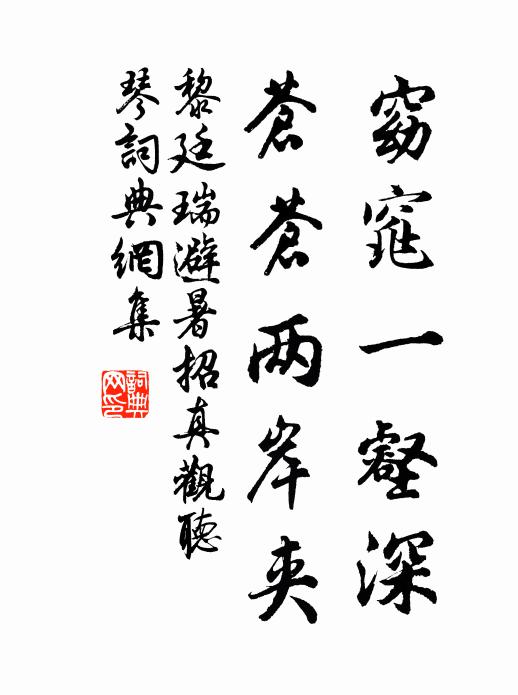 窈窕一壑深
蒼蒼两岸夹
黎廷瑞避暑招真觀聽
琴詞典網集
詞典网印